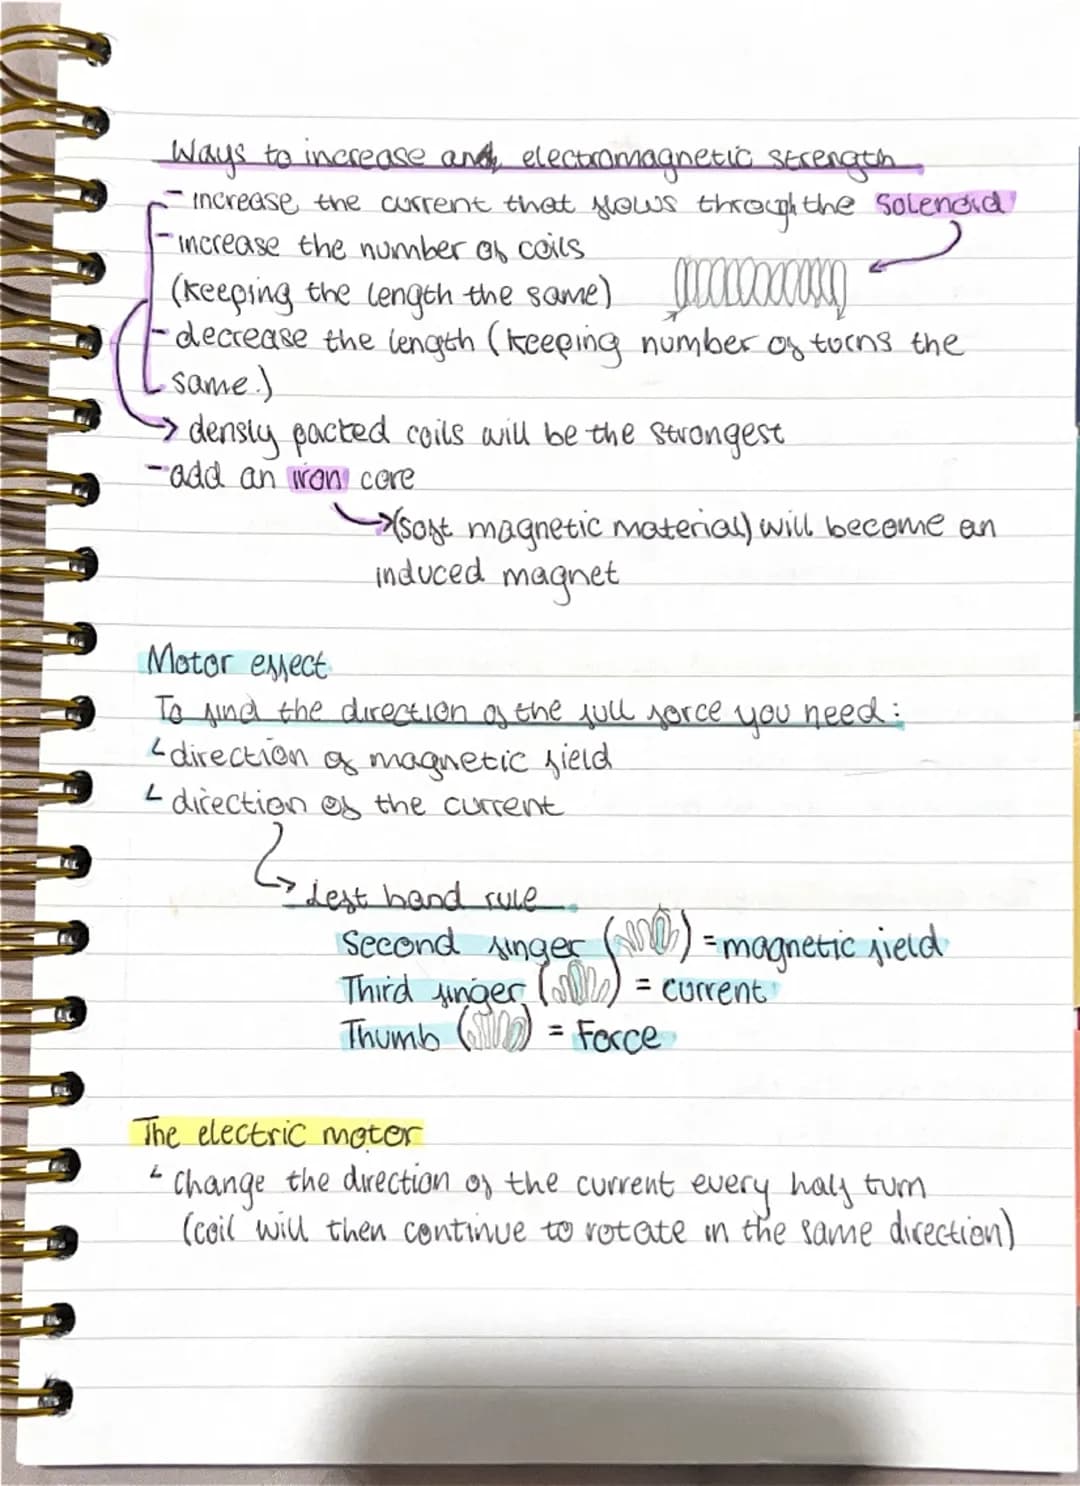 Ways to increase and electromagnetic strength
- increase the current that flows through the Solenoid
- increase the number of coils
(keeping the length the same)
- decrease the length (keeping number of turns the
same.)
→ densly packed coils will be the strongest
- add an iron core
→ (soft magnetic material) will become an
induced magnet
Motor effect
To find the direction of the full force you need:
direction of magnetic field
direction of the current
Left hand rule
Second finger ( ) = magnetic field
Third finger ( ) = current
Thumb ( ) = Force
The electric motor
Change the direction of the current every half turn
(coil will then continue to rotate in the same direction)